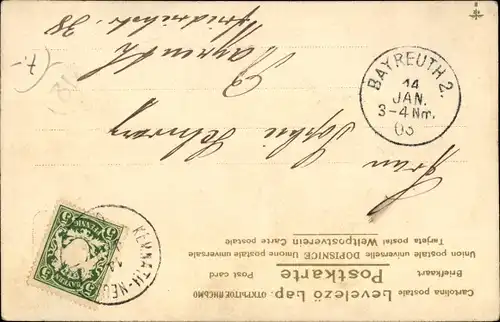 Cartolina postale Levelező Lap. ОТКРЫТОЕ ПИСЬМО
Briefkaart Postkarte Post card
Union postale universelle DOPISNICE Unione postale universale
Tarjeta postal Weltpostverein Carte postale
5 PFENNIG 5
BAYERN
KEMNATH-NEU
14
BAYREUTH 2.
14
JAN.
3-4 Nm.
03
Frau Sophie
Bayreuth
38
7.-